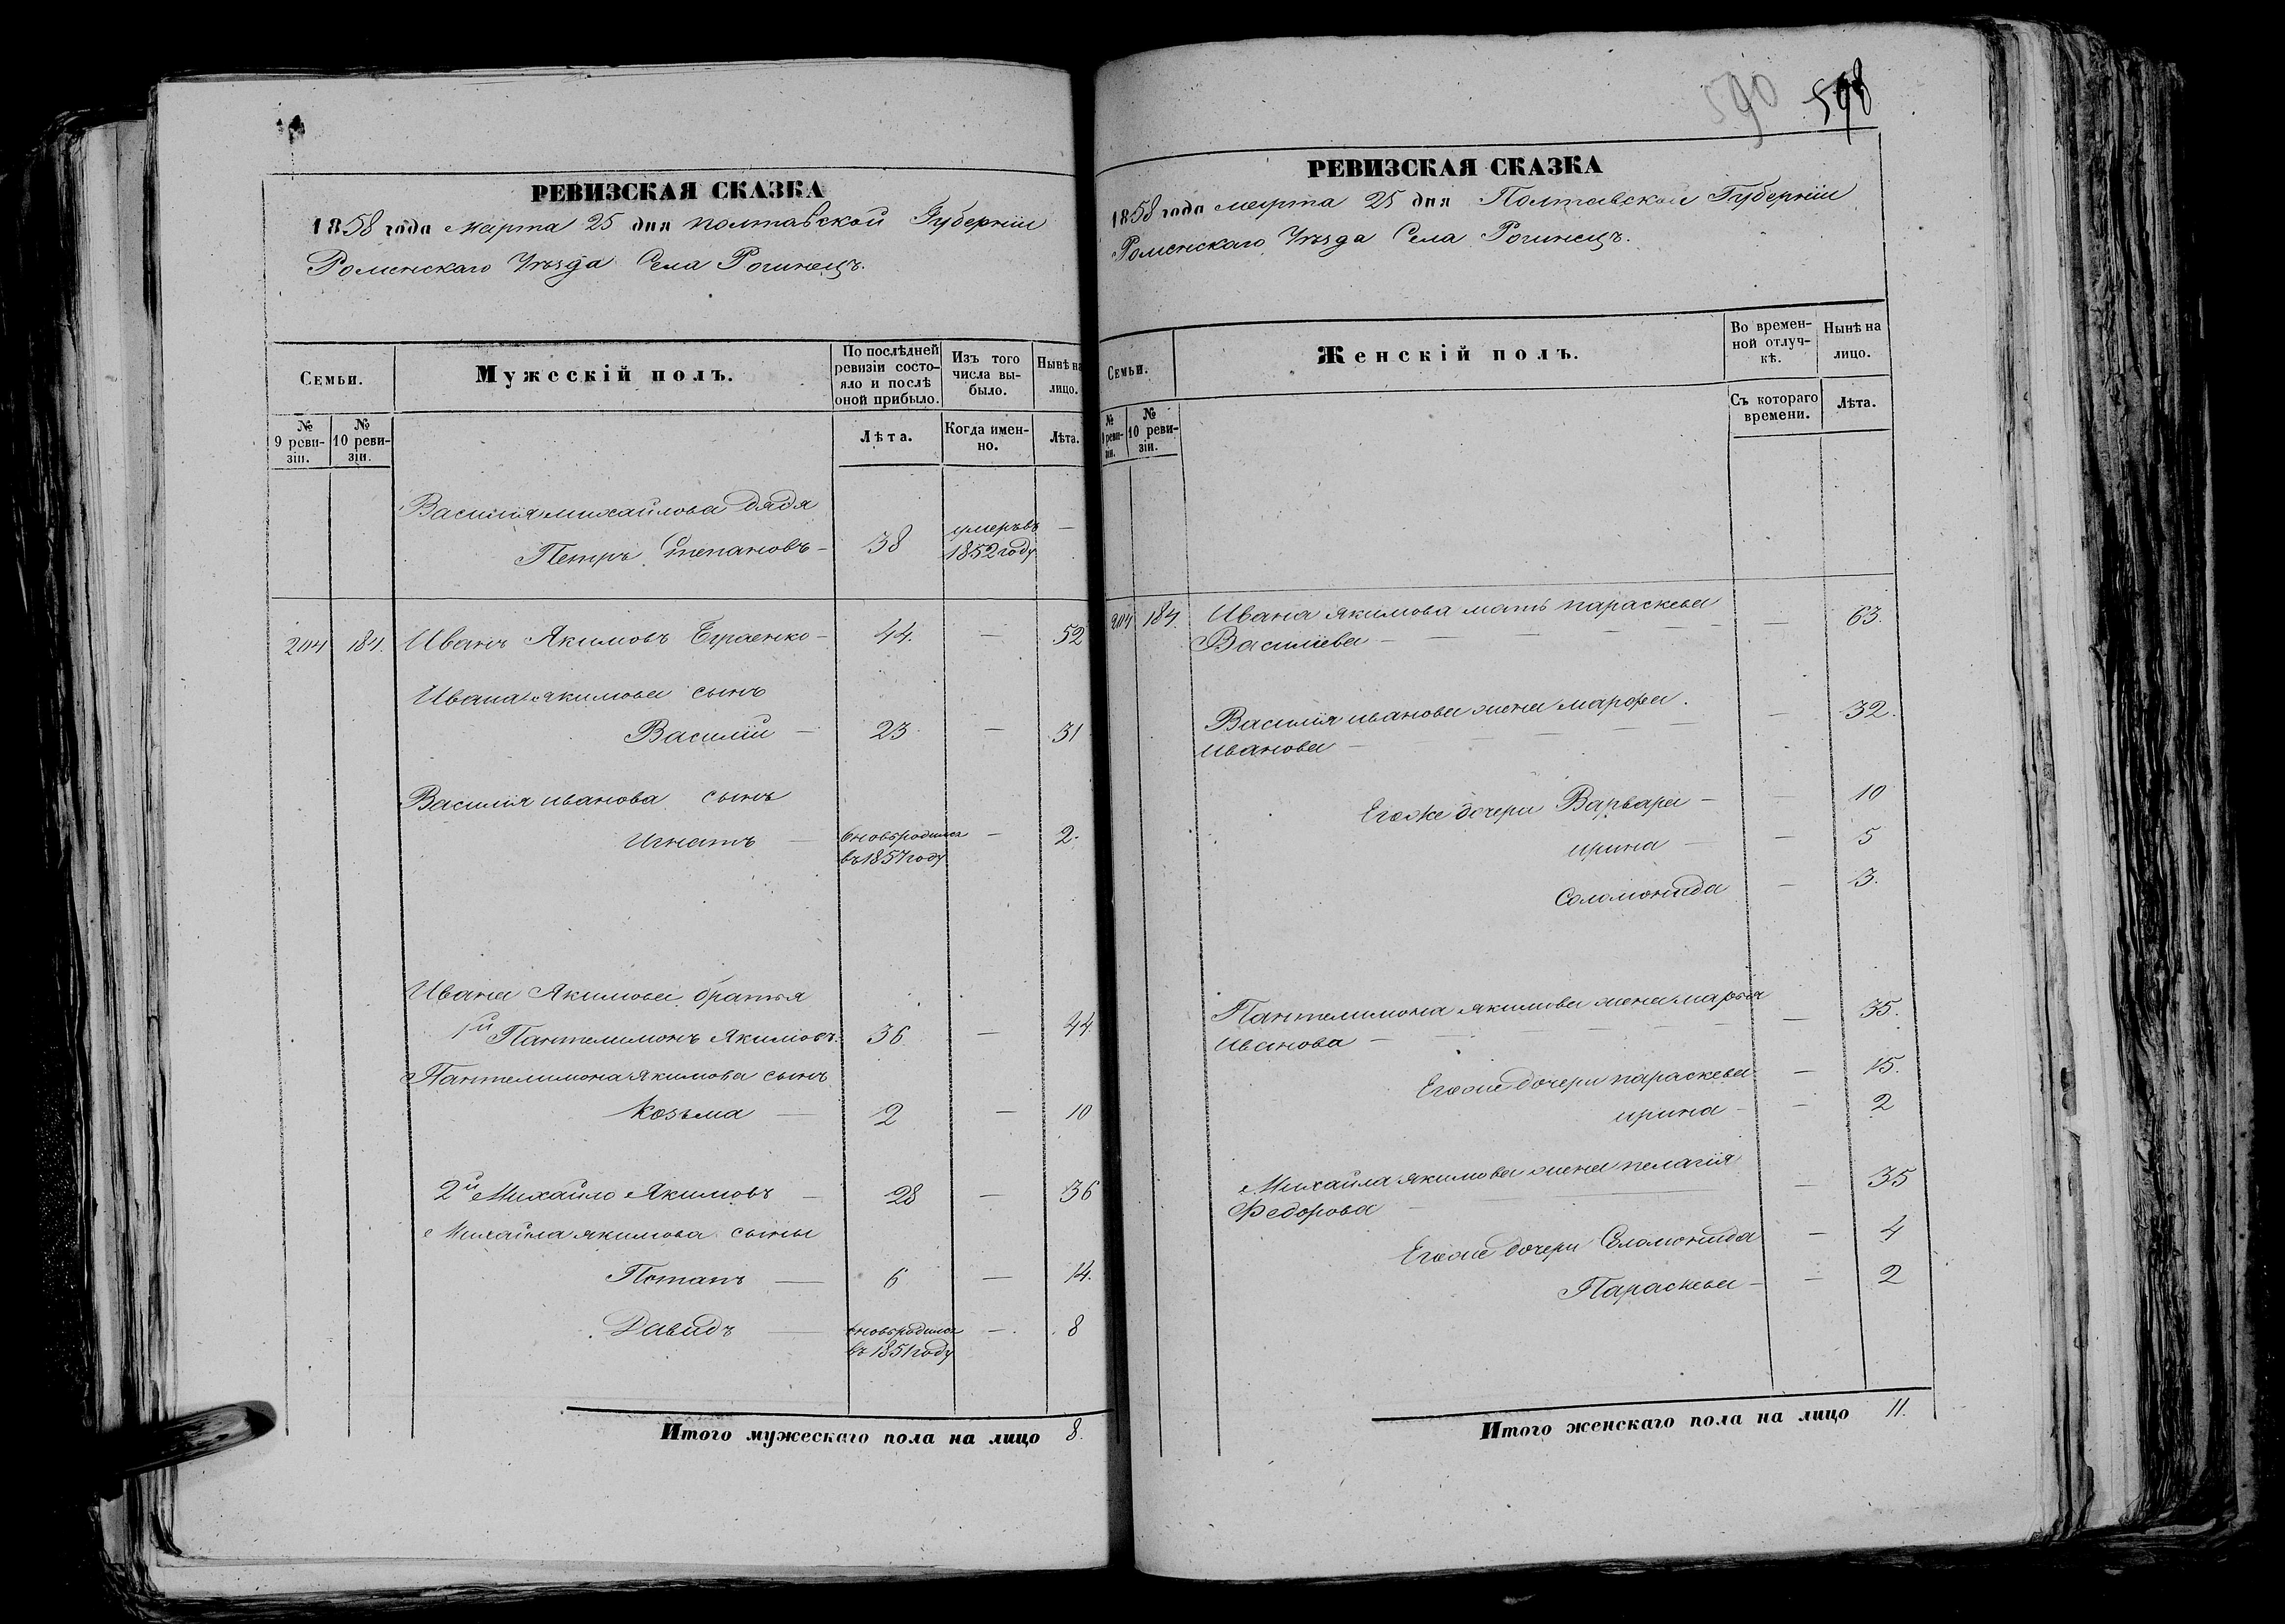 РЕВИЗСКАЯ СКАЗКА
1858 года марта 25 дня Полтавской Губернiи
Роменскаго Уѣзда Села Рогинецъ.
Семьи.
Мужескiй полъ.
По послѣдней ревизiи состояло и послѣ оной прибыло.
Изъ того числа выбыло.
Нынѣ на лицо.
№ 9 ревизiи.
№ 10 ревизiи.
Лѣта.
Когда именно.
Лѣта.
Василiя михайлова дядя
Петръ Степановъ - 38 умеръ въ 1852 году -
204 184. Иванъ Якимовъ - 44. - 52
Ивана якимова сынъ
Василiй - 23 - 31
Василiя иванова сынъ
Игнатъ - вновь родился въ 1857 году - 2.
Ивана Якимова братья
1й Пантелимонъ Якимовъ. 36 - 44.
Пантелимона якимова сынъ
Козьма - 2 - 10
2й Михайло Якимовъ - 28 - 36
Михайла якимова сыны
Потапъ - 6 - 14.
Давидъ - вновь родился въ 1851 году - 8
Итого мужескаго пола на лицо 8.
590 598
РЕВИЗСКАЯ СКАЗКА
1858 года марта 25 дня Полтавской Губернiи
Роменскаго Уѣзда Села Рогинецъ.
Семьи.
Женскiй полъ.
Во временной отлучкѣ.
Нынѣ на лицо.
№ 9 ревизiи.
№ 10 ревизiи.
Съ котораго времени.
Лѣта.
204 184. Ивана якимова мать параскева
Василiева - - 63.
Василiя иванова жена марфа
иванова - - 32.
Егоже дочери Варвара - - 10
ирина - - 5
Соломонида - 3.
Пантелимона якимова жена марья
иванова - - 35.
Егоже дочери параскева - 15.
ирина - - 2
Михайла якимова жена пелагiя
Федорова - - 35
Егоже дочери Соломонида - 4
Параскева - - 2
Итого женскаго пола на лицо 11.